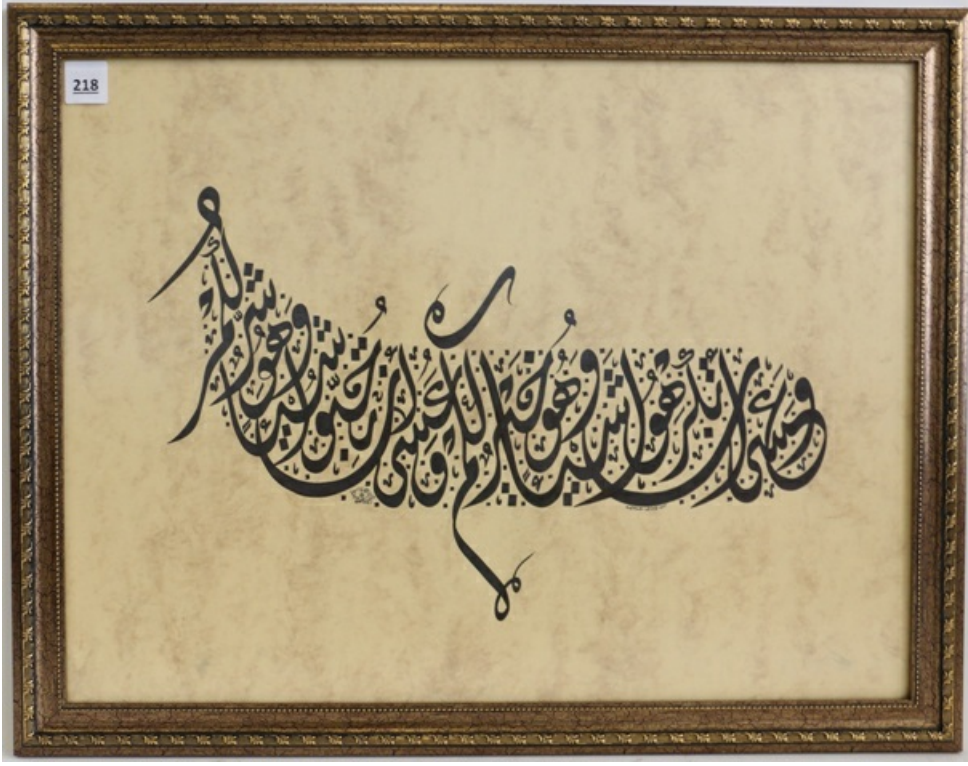 218
وعسى أن تكرهوا شيئا وهو خير لكم وعسى أن تحبوا شيئا وهو شر لكم